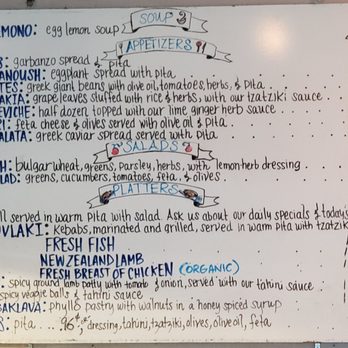 SOUP
EMONO: egg lemon soup
APPETIZERS
S: garbanzo spread & pita
ANOUSH: eggplant spread with pita
TES: greek giant beans with olive oil, tomatoes, herbs, & pita
AKIA: grape leaves stuffed with rice & herbs, with our tzatziki sauce
EVICHE: half dozen topped with our lime ginger herb sauce
I: feta cheese & olives served with olive oil & pita
ALATA: greek caviar spread served with pita
SALADS
H: bulgar wheat, greens, parsley, herbs, with lemon-herb dressing
LAD: greens, cucumbers, tomatoes, feta, & olives
PLATTERS
ll served in warm pita with salad. Ask us about our daily specials & today's
OVLAKI: Kebabs, marinated and grilled, served in warm pita with tzatzik
FRESH FISH
NEW ZEALAND LAMB
FRESH BREAST OF CHICKEN (ORGANIC)
: spicy ground lamb patty with tomato & onion, served with our tahini sauce
spicy veggie balls & tahini sauce
BAKLAVA: phyllo pastry with walnuts in a honey spiced syrup
S: pita ... .96¢, dressing, tahini, tzatziki, olives, olive oil, feta